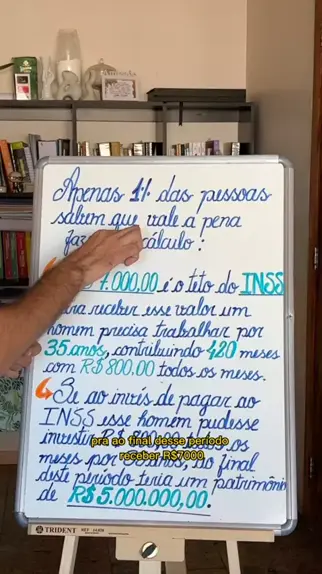 Apenas 1% das pessoas
sabem que vale a pena
cálculo:
7.000,00 é o teto do INSS
receber esse valor um
homem precisa trabalhar por
35 anos, contribuindo 420 meses
com R$ 800,00 todos os meses.
Se ao invés de pagar ao
INSS esse homem pudesse
pra ao final desse período
receber R$7000
meses por
final
deste período teria um patrimônio
de R$ 5.000.000,00.
TRIDENT